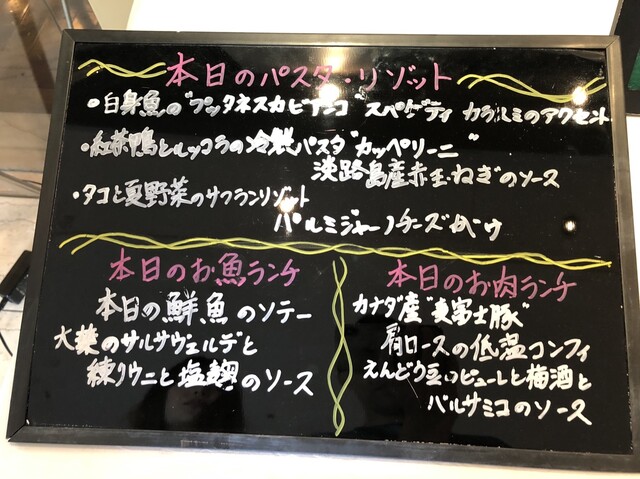 本日のパスタ・リゾット
・白身魚の"プッタネスカビアンコ" スパゲティ カラスミのアクセント
・紅茶鴨とルッコラの冷製パスタ"カッペリーニ"
淡路島産赤玉ねぎのソース
・タコと夏野菜のサフランリゾット
パルミジャーノチーズがけ
本日のお魚ランチ
本日の鮮魚のソテー
大葉のサルサヴェルデと
練りウニと塩麹のソース
本日のお肉ランチ
カナダ産"麦富士豚"
肩ロースの低温コンフィ
えんどう豆のピューレと梅酒と
バルサミコのソース